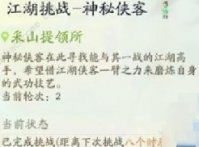 江湖挑战-神秘侠客
采山提领所
神秘侠客在此寻能与其一战的江湖高
手，希望借江湖侠客一臂之力来磨练自
身的武功技艺。
当前轮次：2
当前状态
已完成挑战(距离下次挑战八个时